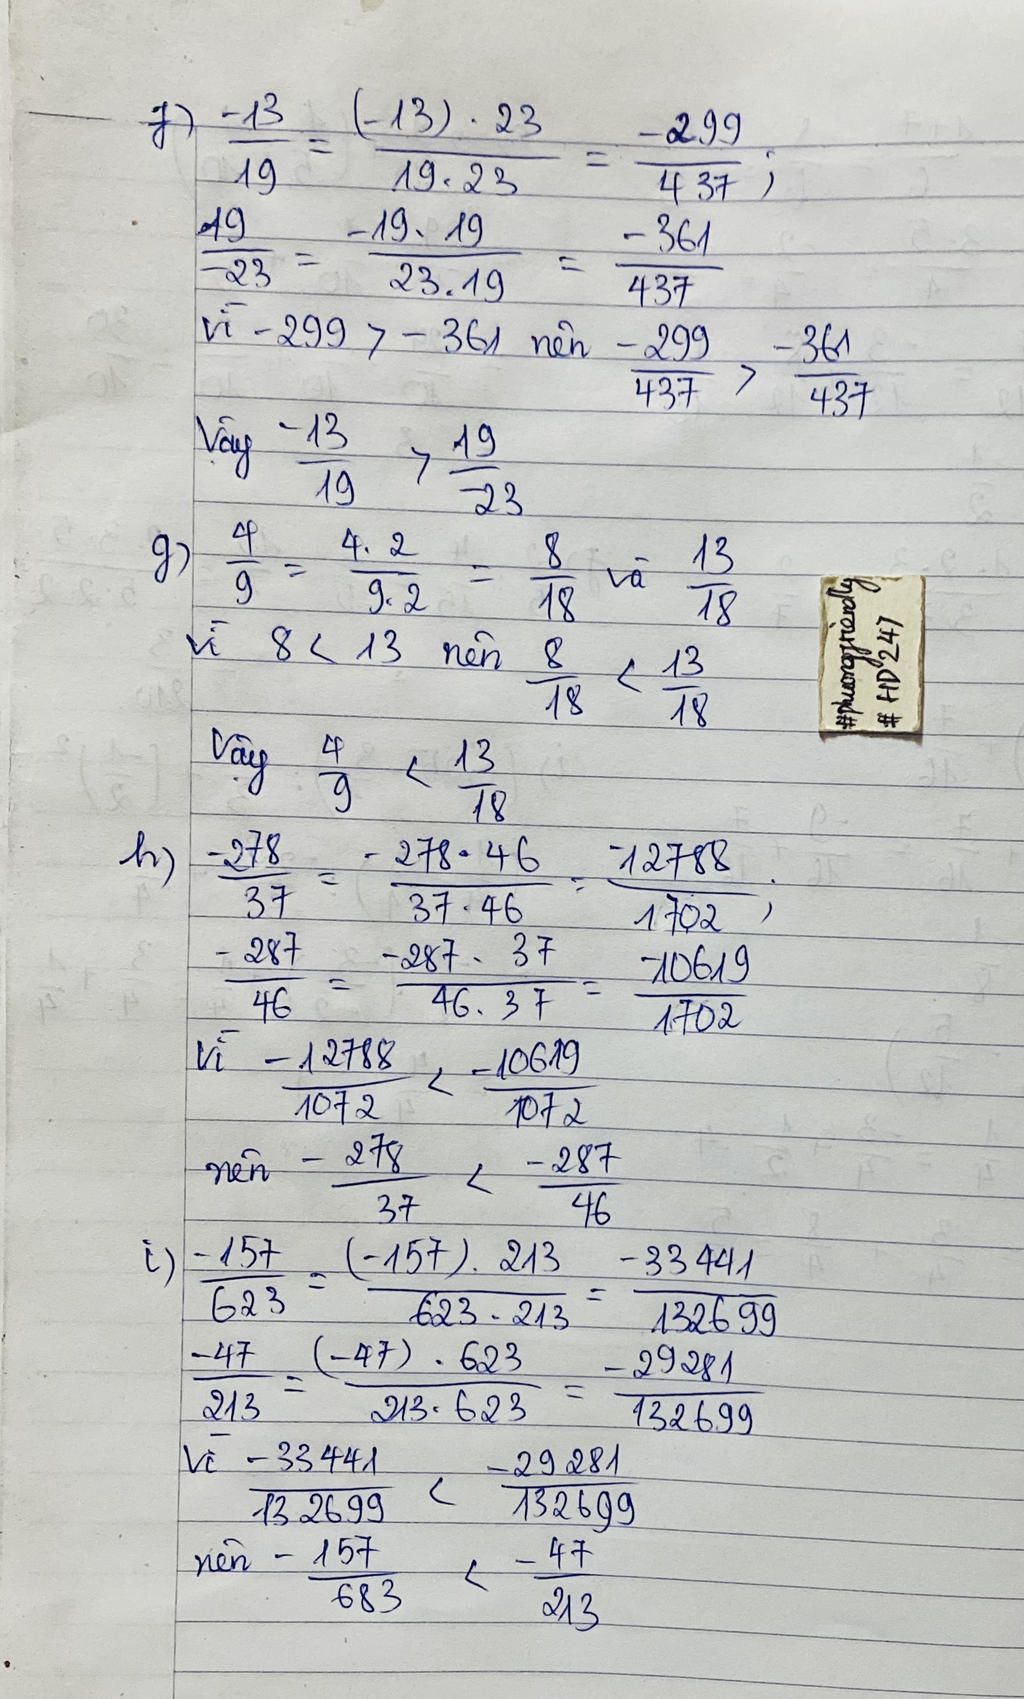 f) -13/19 = (-13) . 23 / 19.23 = -299/437 ;
19/-23 = -19. 19 / 23.19 = -361/437
Vì -299 > -361 nên -299/437 > -361/437
Vậy -13/19 > 19/-23
g) 4/9 = 4.2/9.2 = 8/18 và 13/18
Vì 8 < 13 nên 8/18 < 13/18
Vậy 4/9 < 13/18
#phuongfriendly
# HD247
h) -278/37 = -278.46 / 37.46 = -12788/1702 ;
-287/46 = -287. 37 / 46.37 = -10619/1702
Vì -12788/1072 < -10619/1072
nên -278/37 < -287/46
i) -157/623 = (-157). 213 / 623.213 = -33441/132699
-47/213 = (-47) . 623 / 213.623 = -29281/132699
Vì -33441/132699 < -29281/132699
nên -157/683 < -47/213